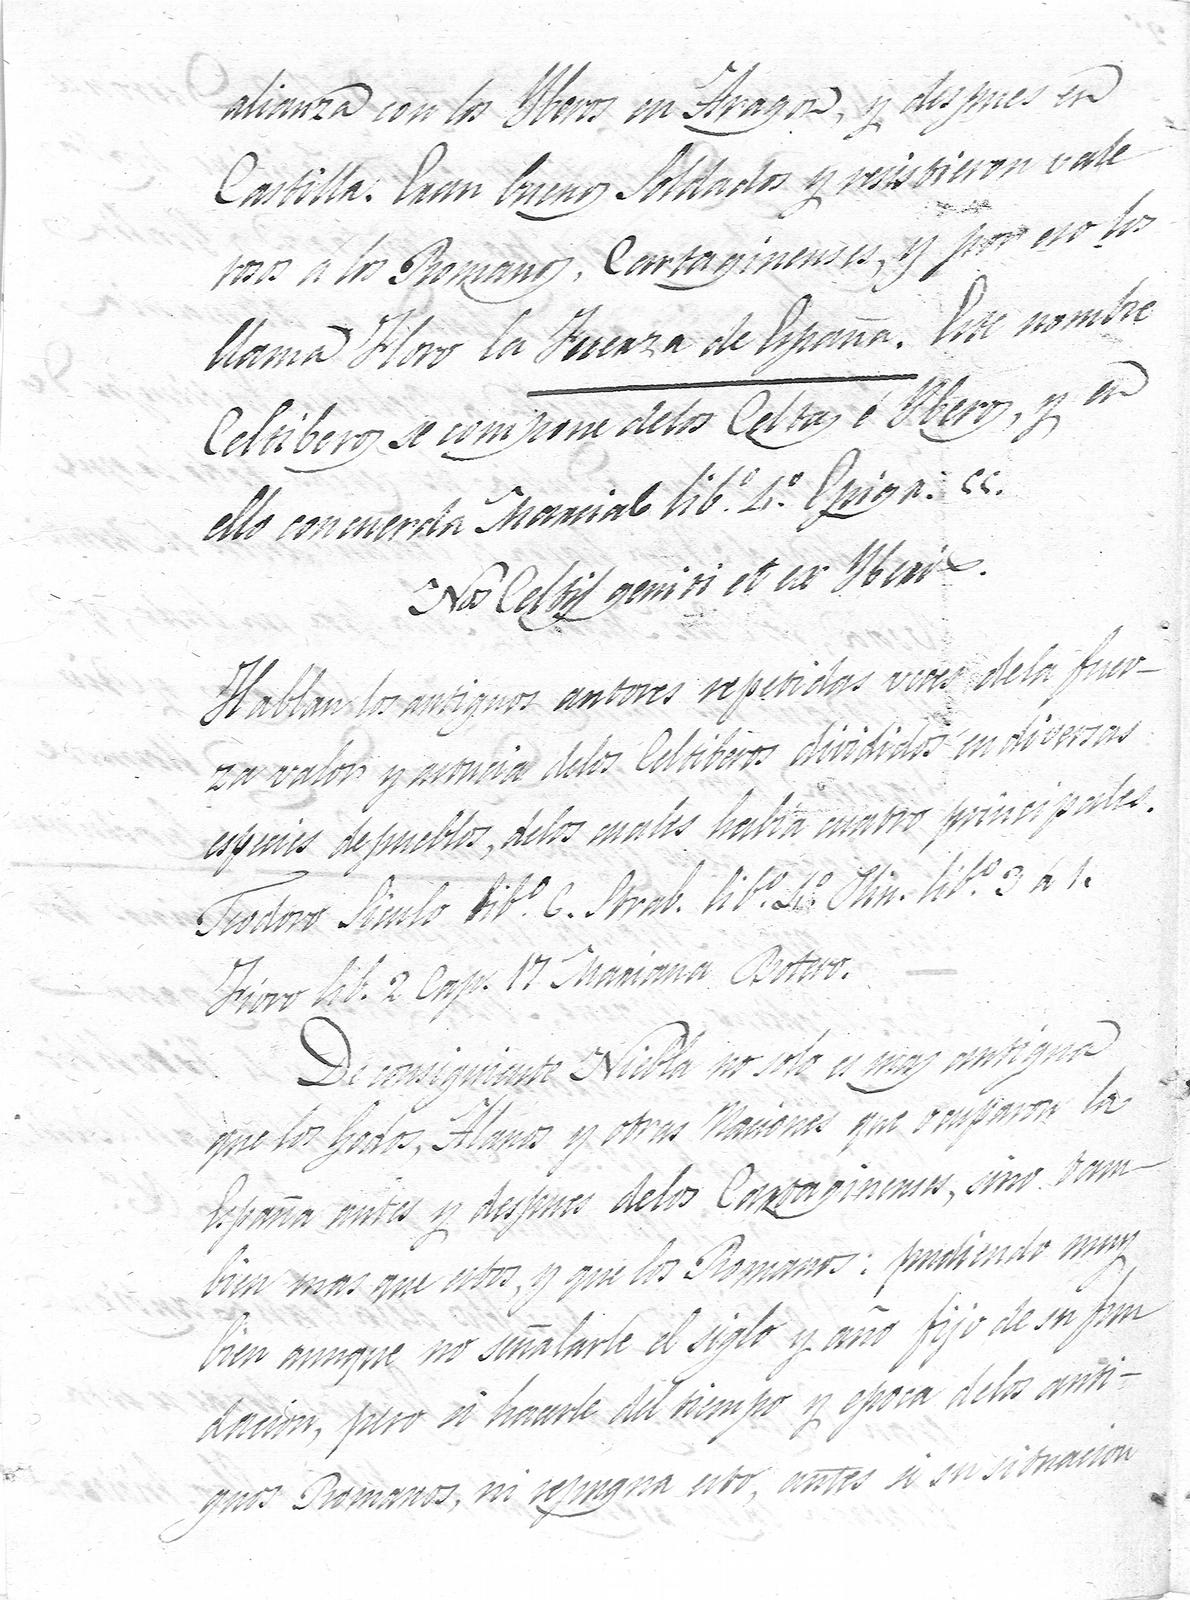 alianza con los Yberos en Aragon, y despues en
Castilla. Eran buenos Soldados y resistieron vale
rosos á los Romanos, Cartaginenses, y por eso los
llama Floro la Fuerza de España. Este nombre
Celtiberos se compone delos Celtas é Yberos, y en
ello concuerda Marcial lib.º 4.º Epigr. 55.
Nos Celtis geniti et ex Yberis.
Hablan los antiguos autores repetidas veces dela fuer-
za valor y astucia delos Celtiberos divididos en diversas
especies de pueblos, delos cuales había cuatro principales.
Teodoro Siculo lib.º 6. Strab. lib.º 4.º Plin. lib.º 3 á 1.
Floro lib. 2 Cap. 17 Mariana Botero.
De consiguiente Niebla no solo es mas antigua
que los Godos, Alanos y otras Naciones que ocuparon la
España antes y despues delos Cartaginenses, sino tam-
bien mas que estos, y que los Romanos: pudiendo muy
bien aunque no señalarle el siglo y año fijo de su fun
dacion, pero si hacerle del tiempo y epoca delos anti-
guos Romanos, ni repugna esto, antes si su situacion